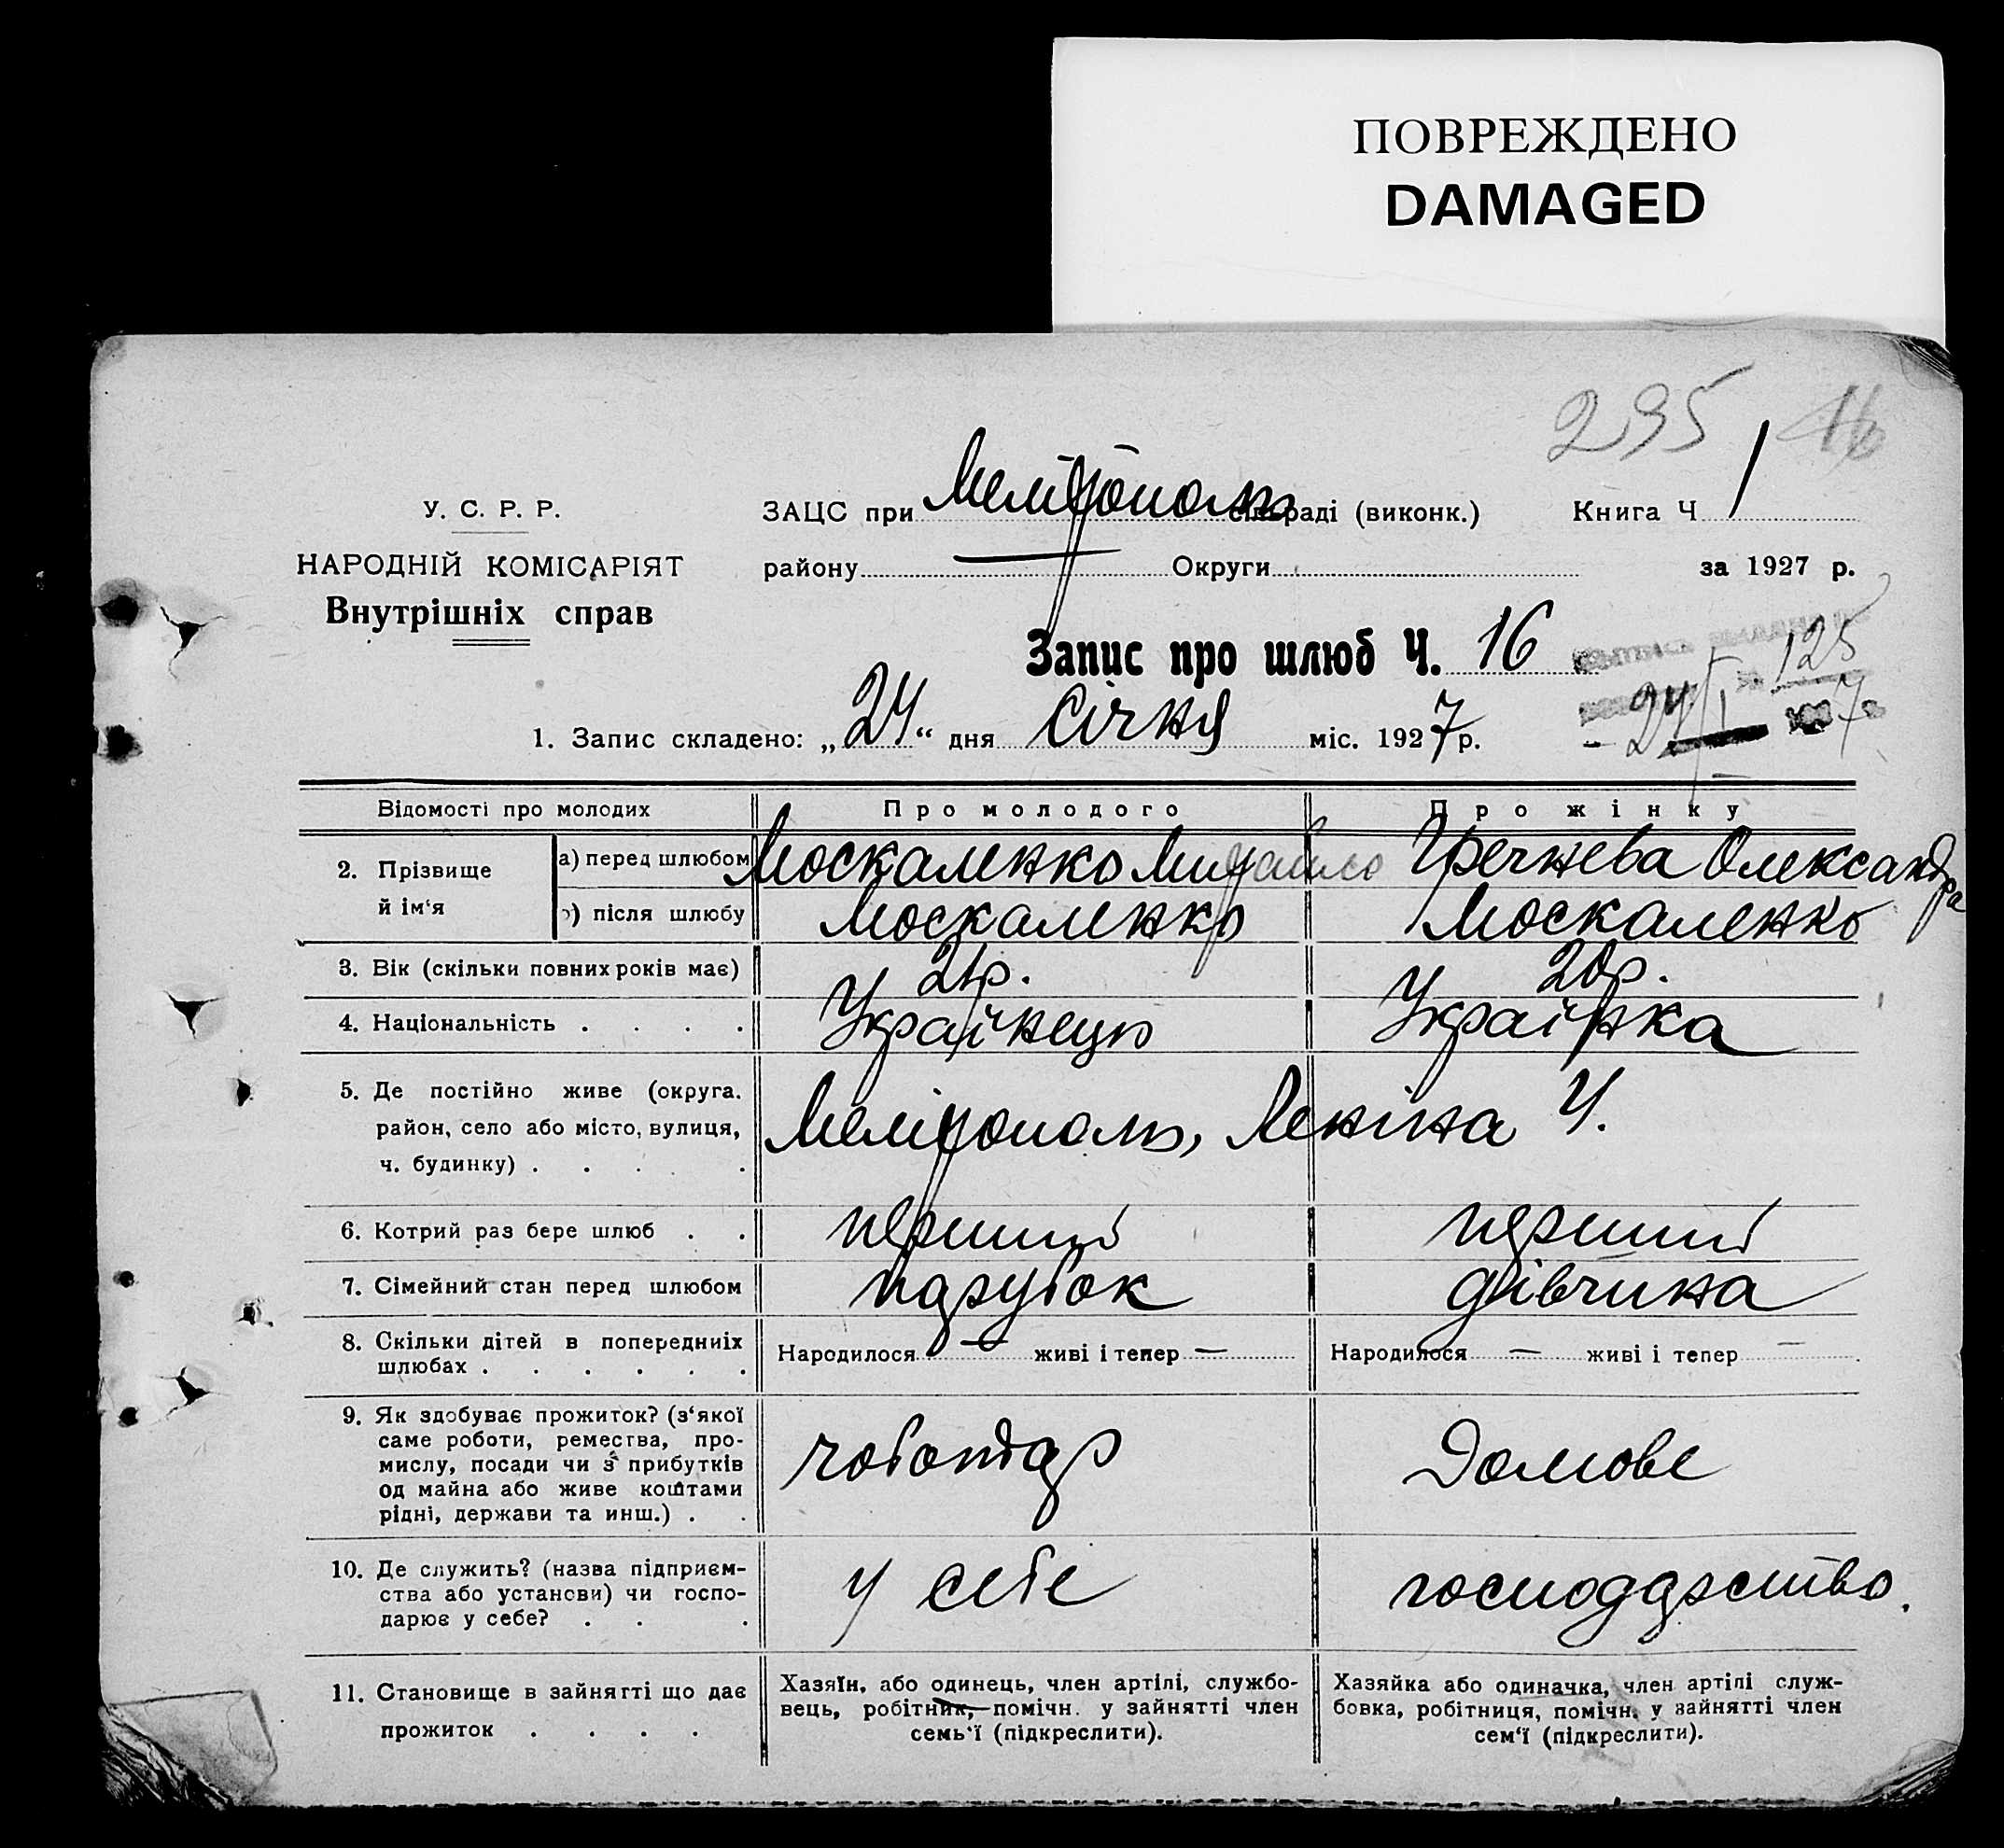 ПОВРЕЖДЕНО
DAMAGED
295 16
У. С. Р. Р.
НАРОДНІЙ КОМІСАРІЯТ
Внутрішніх справ
ЗАЦС при Мелітополь сільраді (виконк.) Книга Ч 1
району — Округи за 1927 р.
Запис про шлюб Ч. 16
125
24/I 1927
1. Запис складено: „24“ дня Січня міс. 1927 р.
Відомості про молодих Про молодого Про жінку
2. Прізвище й ім‘я
а) перед шлюбом Москаленко Михайло Гречнева Олександра
б) після шлюбу Москаленко Москаленко
3. Вік (скільки повних років має) 21р. 20р.
4. Національність . . . . Українець Українка
5. Де постійно живе (округа.
район, село або місто, вулиця,
ч. будинку) . . . . Мелітополь, Леніна 4.
6. Котрий раз бере шлюб . . перший перший
7. Сімейний стан перед шлюбом парубок дівчина
8. Скільки дітей в попередниіх
шлюбах . . . . . .
Народилося — живі і тепер — Народилося — живі і тепер —
9. Як здобуває прожиток? (з‘якої
саме роботи, ремества, про-
мислу, посади чи з прибутків
од майна або живе коштами
рідні, держави та инш.) . .
чоботар Домове
10. Де служить? (назва підприєм-
ства або установи) чи госпо-
дарює у себе? . . .
у себе господарство.
11. Становище в зайнятті що дає
прожиток . . . .
Хазяїн, або одинець, член артілі, службо-
вець, робітник, помічн. у зайнятті член
семь‘ї (підкреслити).
Хазяйка або одиначка, член артілі служ-
бовка, робітниця, помічн. у зайнятті член
сем‘ї (підкреслити).